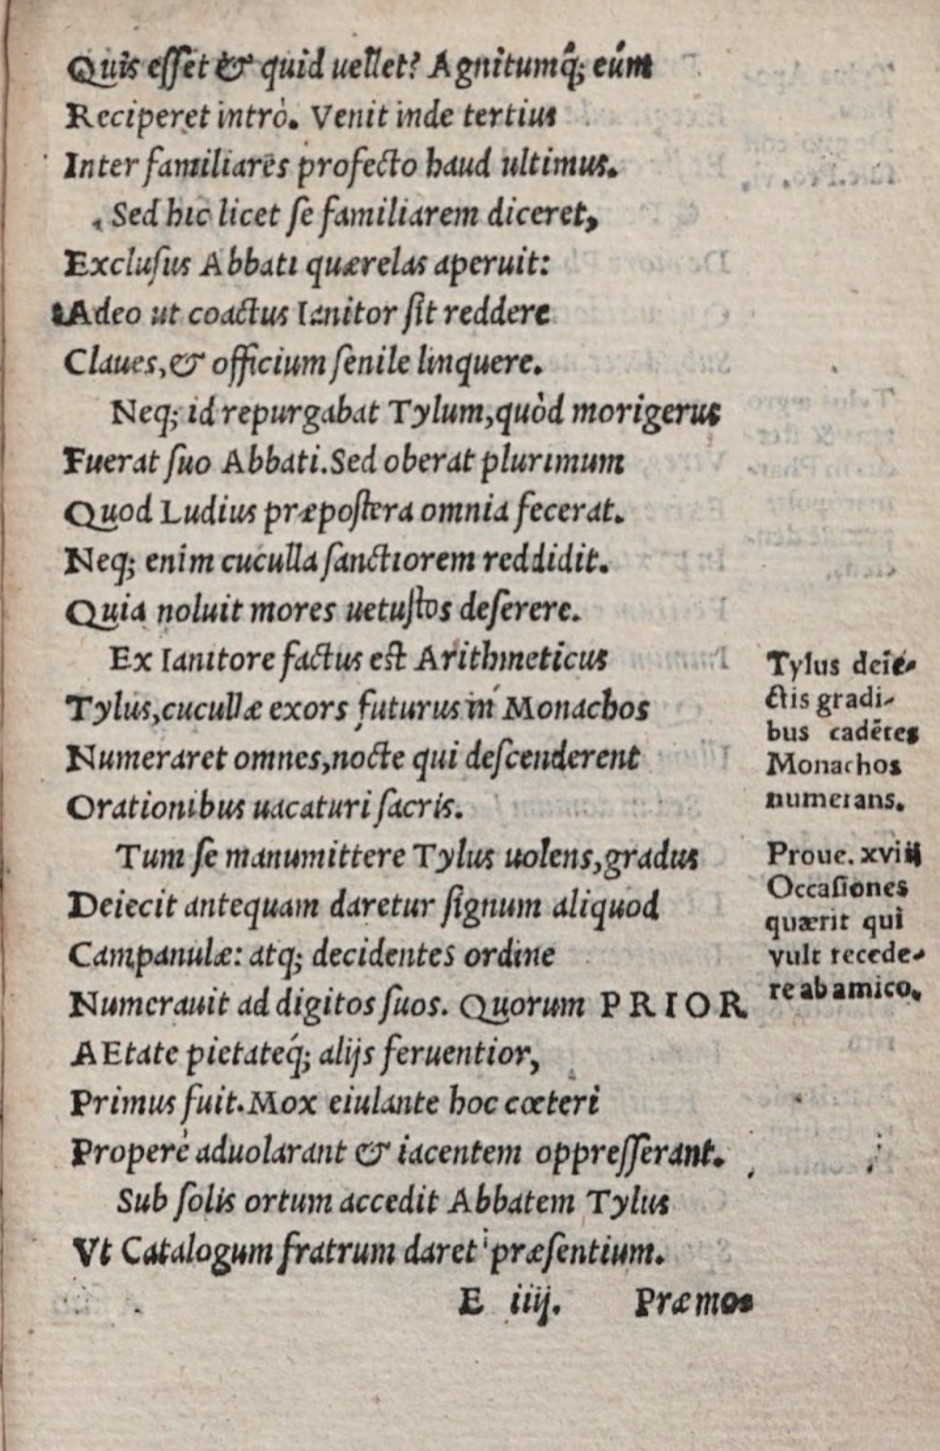 Quis esset & quid uellet? Agnitumq́; eúm
Reciperet intrò. Venit inde tertius
Inter familiares profecto haud ultimus.
Sed hic licet se familiarem diceret,
Exclusus Abbati quærelas aperuit:
Adeo ut coactus Ianitor sit reddere
Claues, & officium senile linquere.
Neq; id repurgabat Tylum, quòd morigerus
Fuerat suo Abbati. Sed oberat plurimum
Quod Ludius præpostera omnia fecerat.
Neq; enim cuculla sanctiorem reddidit.
Quia noluit mores uetustos deserere.
Ex Ianitore factus est Arithmeticus
Tylus, cucullæ exors futurus in Monachos
Numeraret omnes, nocte qui descenderent
Orationibus uacaturi sacris.
Tum se manumittere Tylus uolens, gradus
Deiecit antequam daretur signum aliquod
Campanulæ: atq; decidentes ordine
Numerauit ad digitos suos. Quorum PRIOR
AEtate pietateq́; alijs feruentior,
Primus fuit. Mox eiulante hoc cœteri
Properè aduolarant & iacentem oppresserant.
Sub solis ortum accedit Abbatem Tylus
Vt Catalogum fratrum daret præsentium.
E iiij. Præmo-
Tylus deie-
ctis gradi-
bus cadētes
Monachos
numerans.
Proue. xviij
Occasiones
quærit qui
vult recede-
re ab amico.